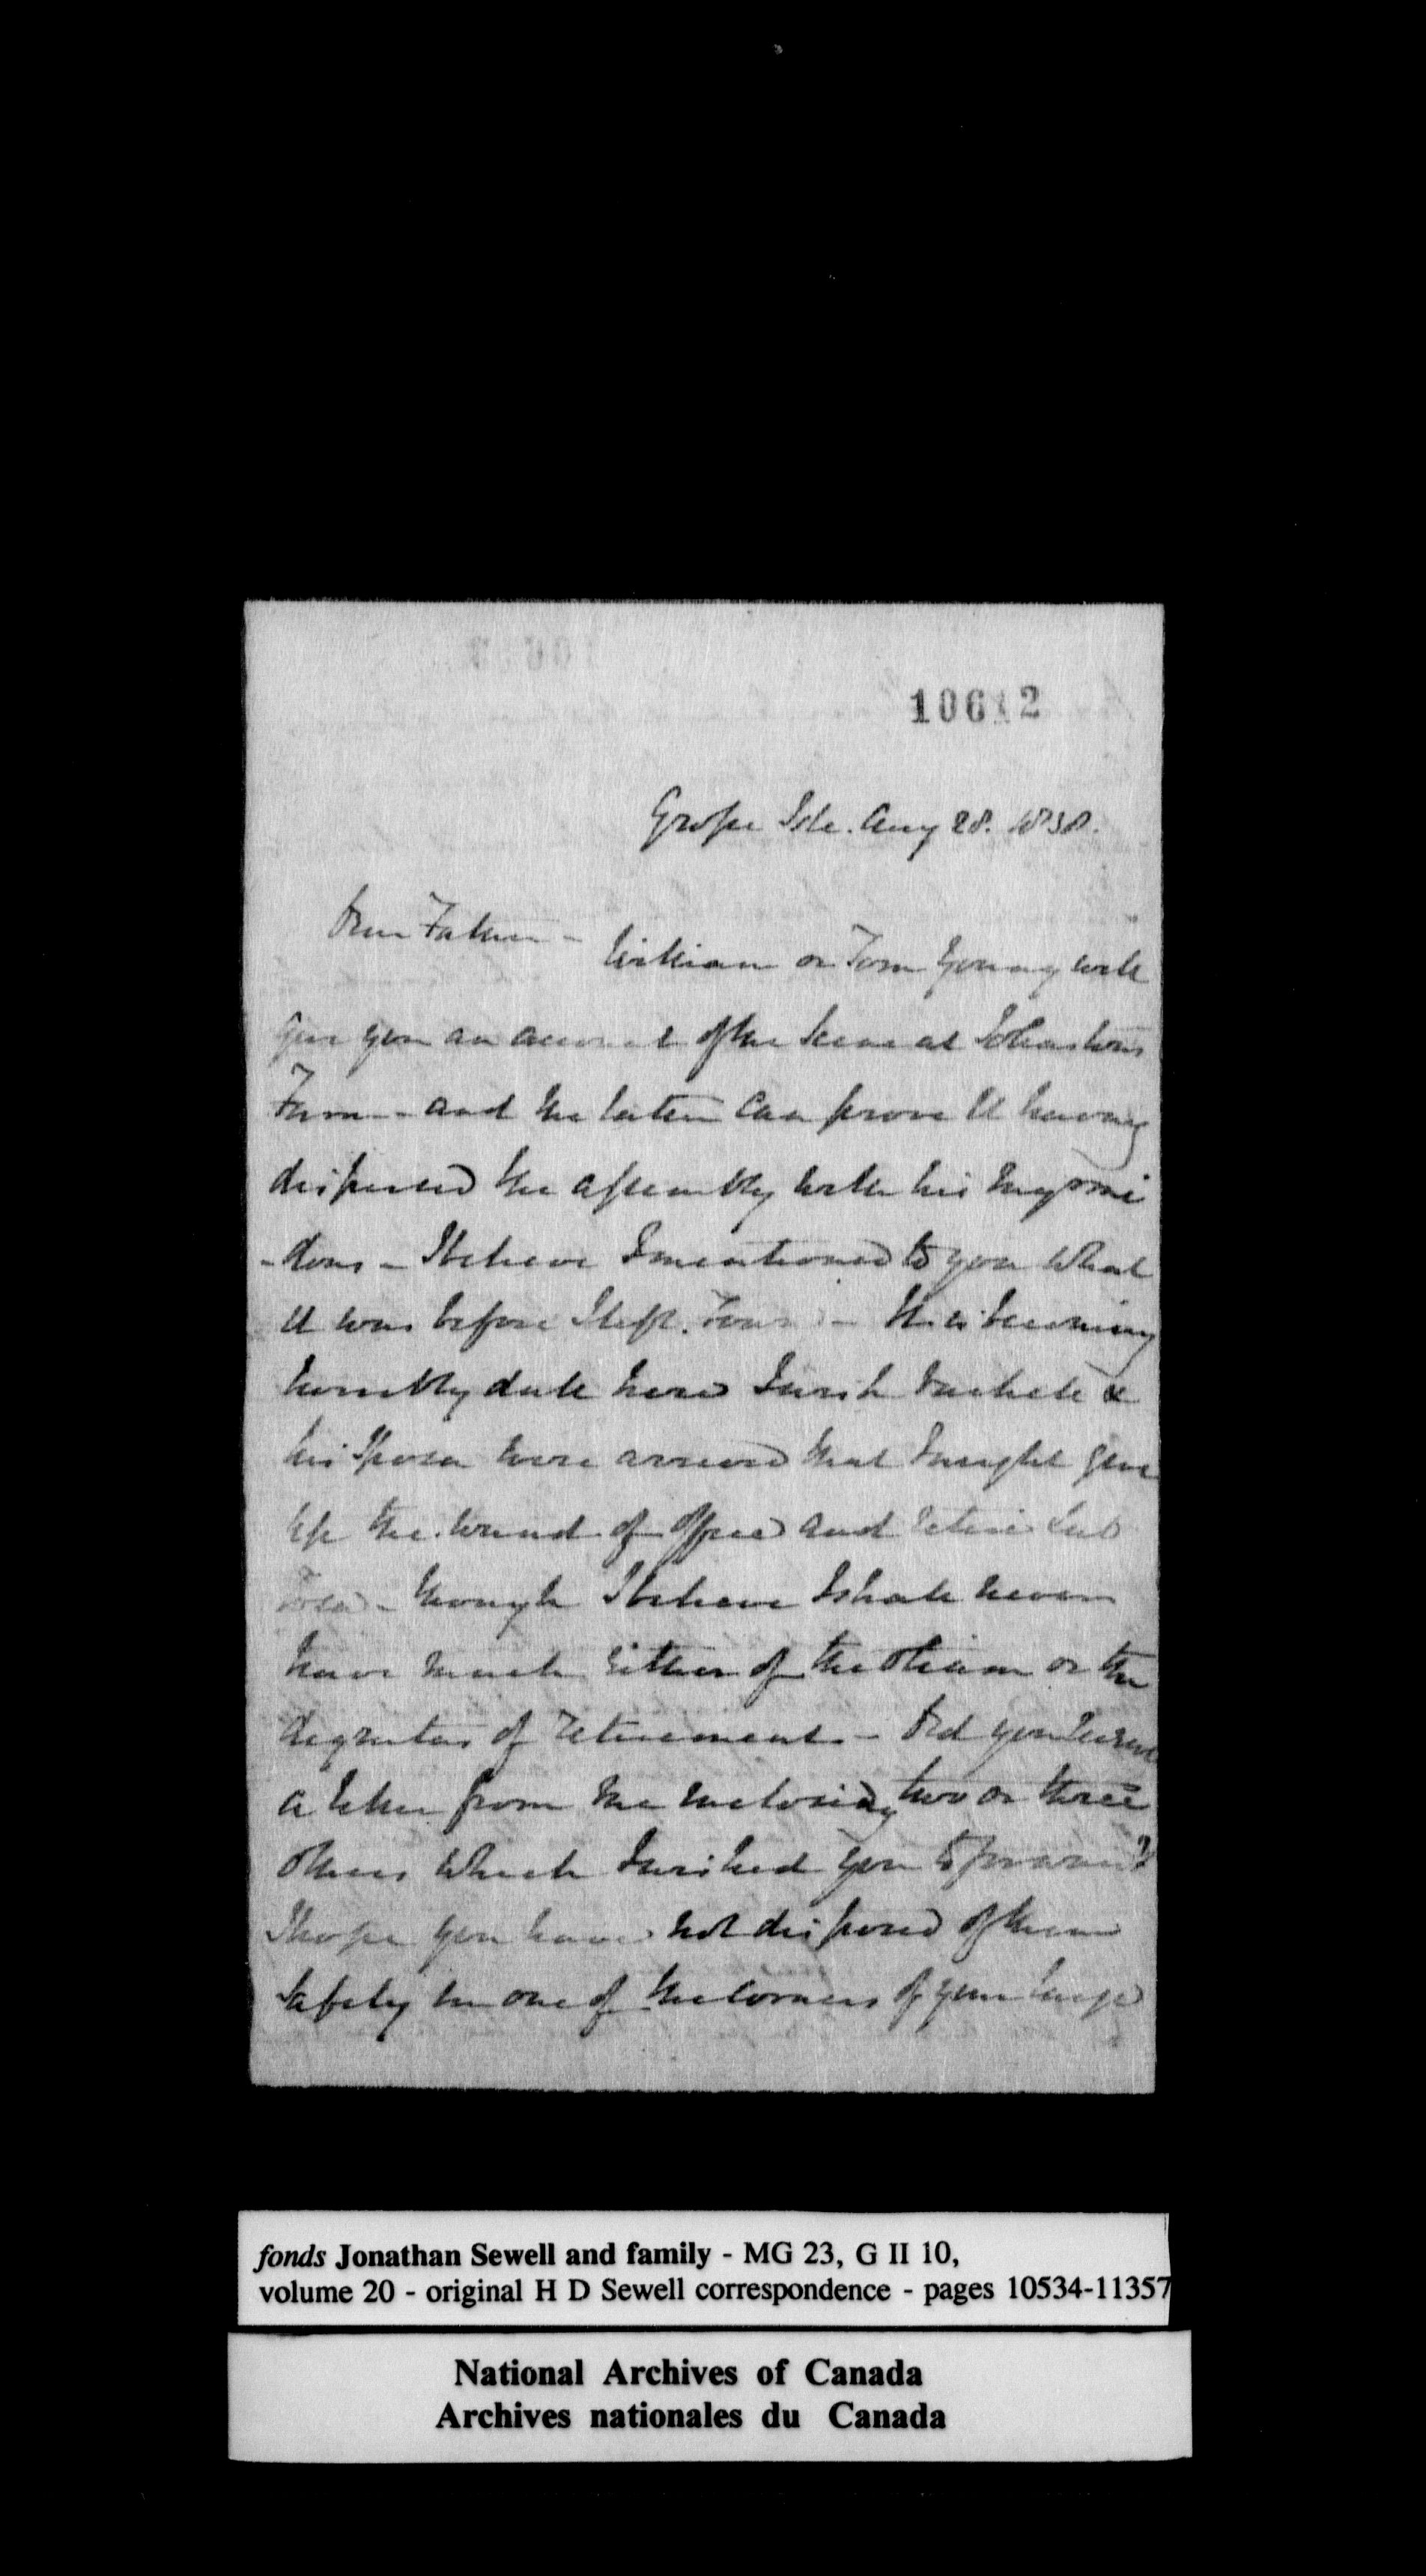 10612
Grosse Isle. Aug 28. 1838.
Dear Father - William or Tom Young will
give you an account of the scene at Johnstons
Farm - and the latter can prove it having
dispersed the assembly with his myrmi
-dons - I believe I mentioned to you what
it was before I left. Town - It is becoming
horribly dull here I wish &
his were arrived that I might give
up the of office and retire sub
though I believe I shall never
have much either of the otium or the
dignitas of retirement - Did you receive
a letter from me inclosing two or three
others which I wished you to forward?
I hope you have not disposed of them
safely in one of the corners of your large
fonds Jonathan Sewell and family - MG 23, G II 10,
volume 20 - original H D Sewell correspondence - pages 10534-11357
National Archives of Canada
Archives nationales du Canada